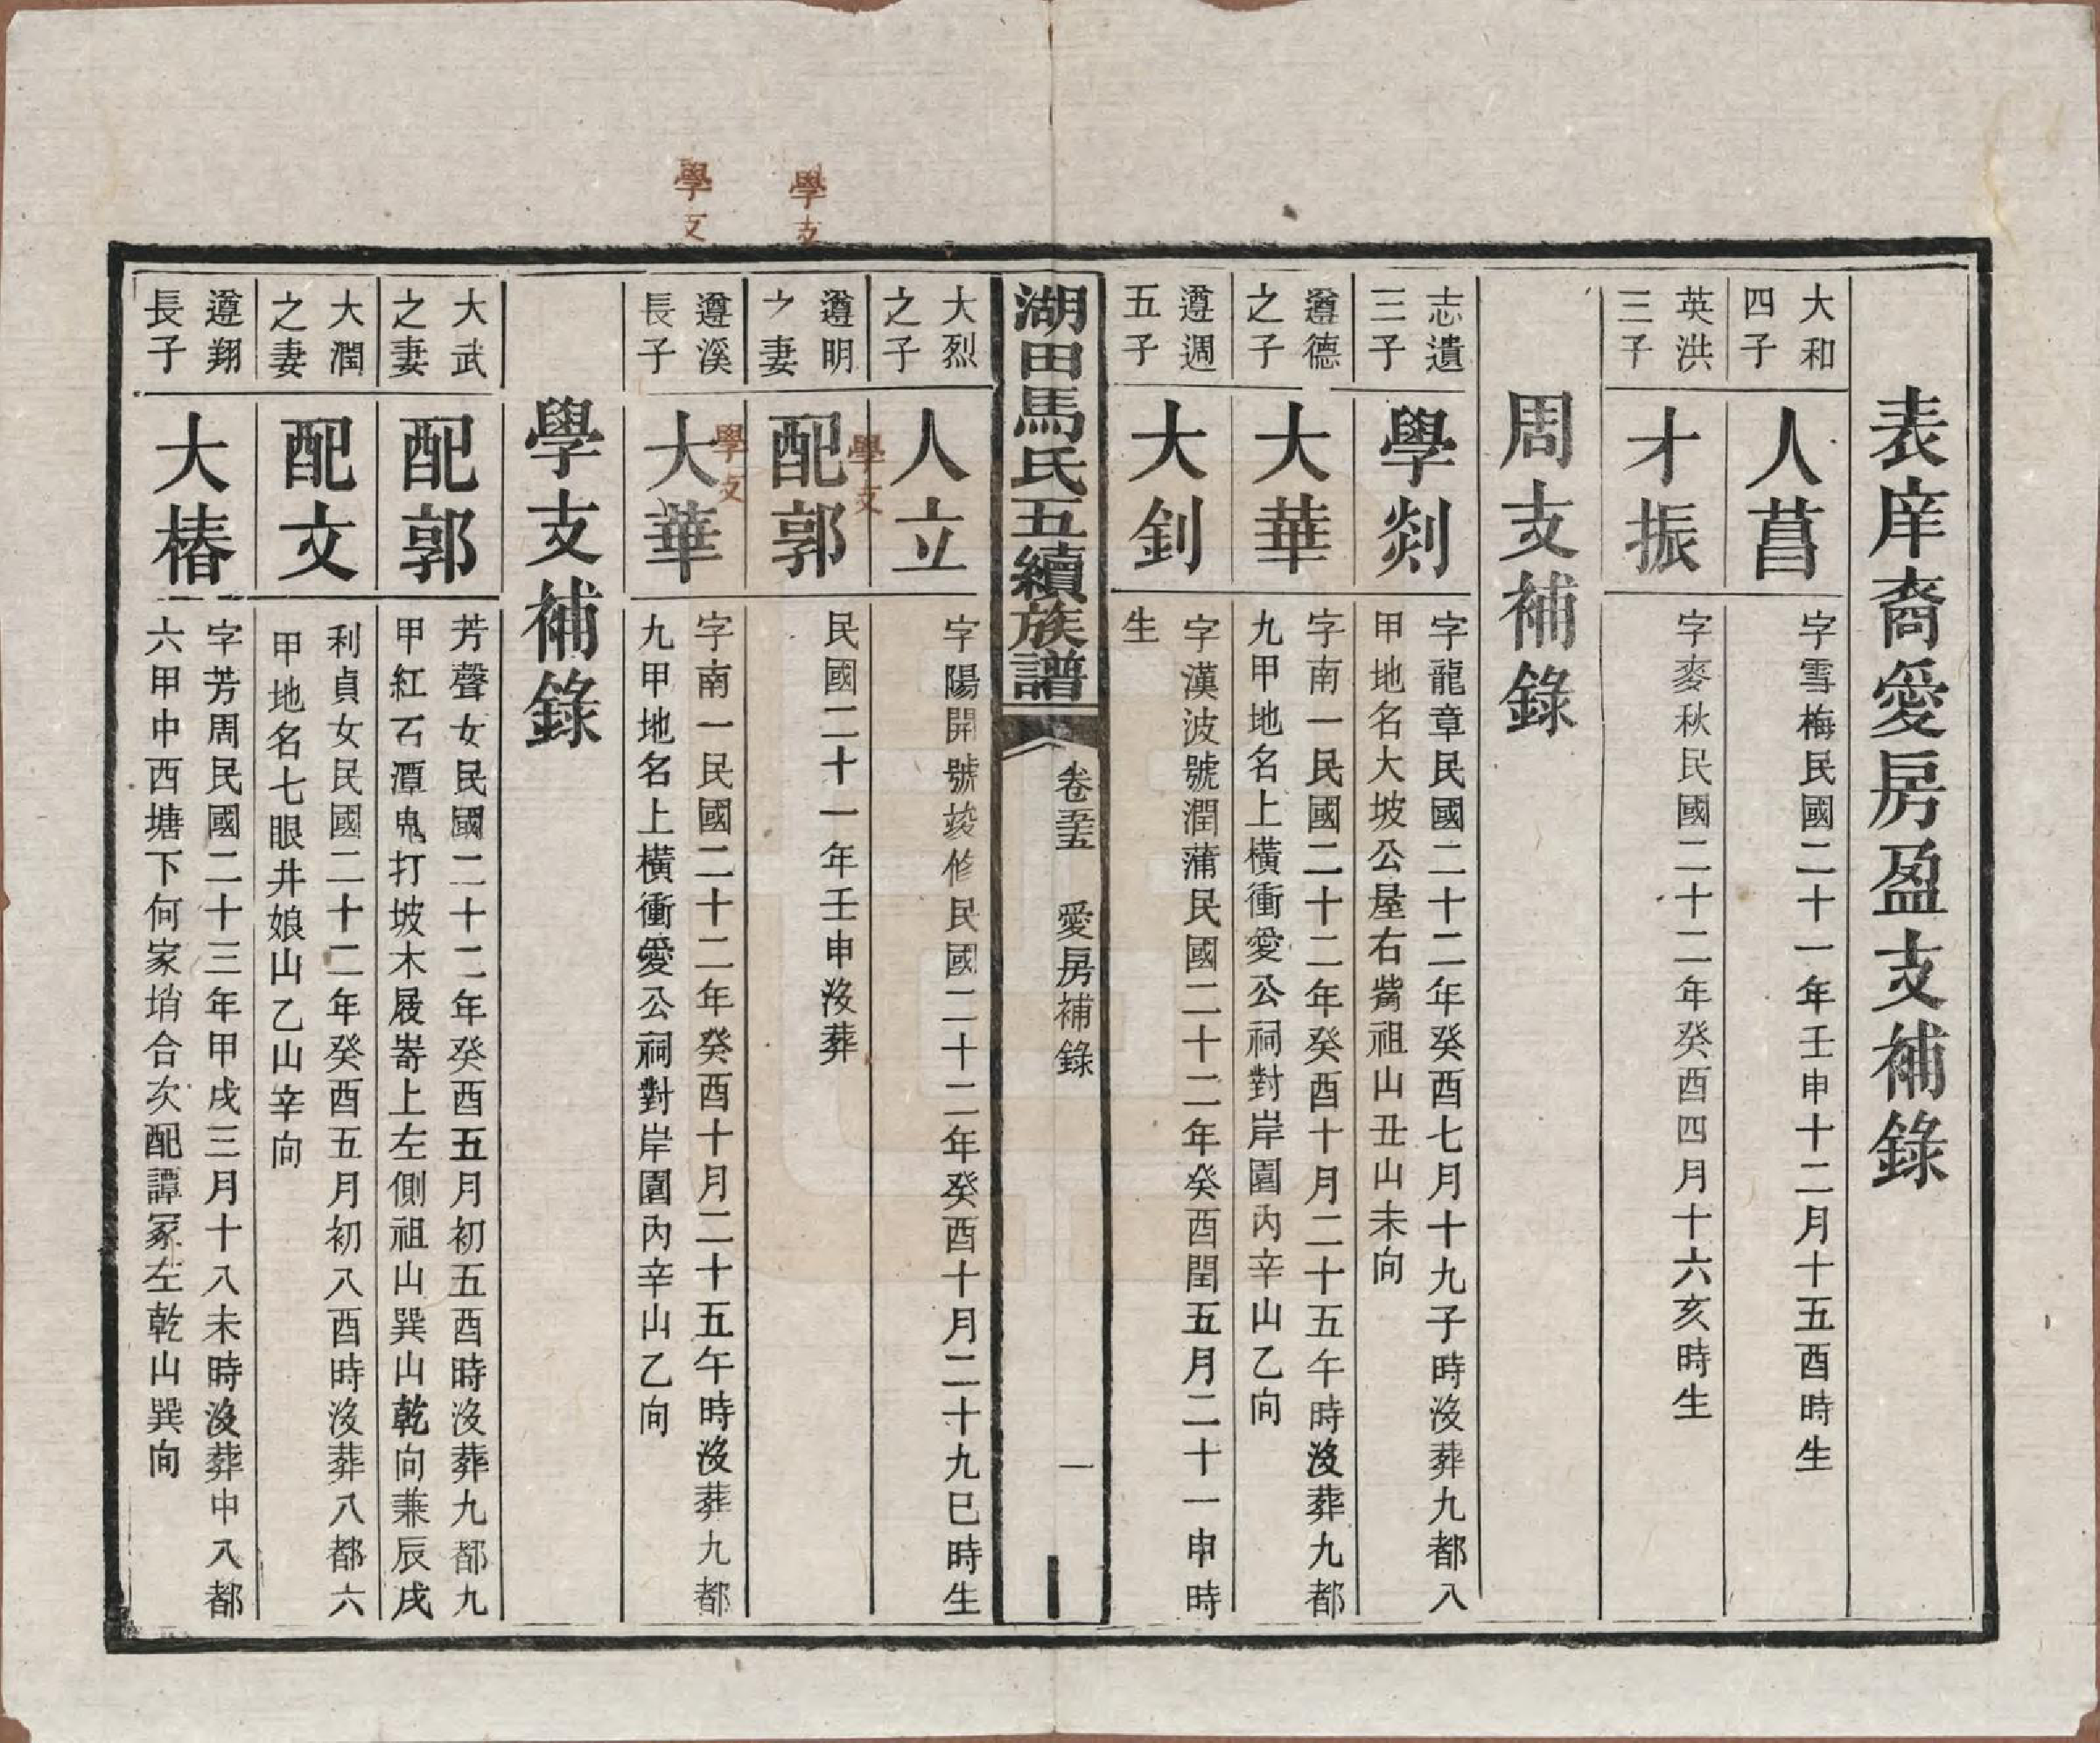 表庠裔愛房盈支補錄
大和
四子
人菖
字雪梅民國二十一年壬申十二月十五酉時生
英洪
三子
才振
字麥秋民國二十二年癸酉四月十六亥時生
周支補錄
志遺
三子
學剡
字龍章民國二十二年癸酉七月十九子時沒葬九都八
甲地名大坡公屋右觜祖山丑山未向
遵德
之子
大華
字南一民國二十二年癸酉十月二十五午時沒葬九都
九甲地名上橫衝愛公祠對岸園內辛山乙向
遵週
五子
大釗
字漢波號潤蒲民國二十二年癸酉閏五月二十一申時
生
湖田馬氏五續族譜
卷五
愛房補錄
一
大烈
之子
人立
字陽開號竣修民國二十二年癸酉十月二十九巳時生
學支
學支
遵明
之妻
配郭
民國二十一年壬申沒葬
學支
學支
遵溪
長子
大華
字南一民國二十二年癸酉十月二十五午時沒葬九都
九甲地名上橫衝愛公祠對岸園內辛山乙向
學支補錄
大武
之妻
配郭
芳聲女民國二十二年癸酉五月初五酉時沒葬九都九
甲紅石潭鬼打坡木屐嵜上左側祖山巽山乾向兼辰戌
大潤
之妻
配文
利貞女民國二十二年癸酉五月初八酉時沒葬八都六
甲地名七眼井娘山乙山辛向
遵翔
長子
大椿
字芳周民國二十三年甲戌三月十八未時沒葬中八都
六甲中西塘下何家塝合次配譚冢左乾山巽向